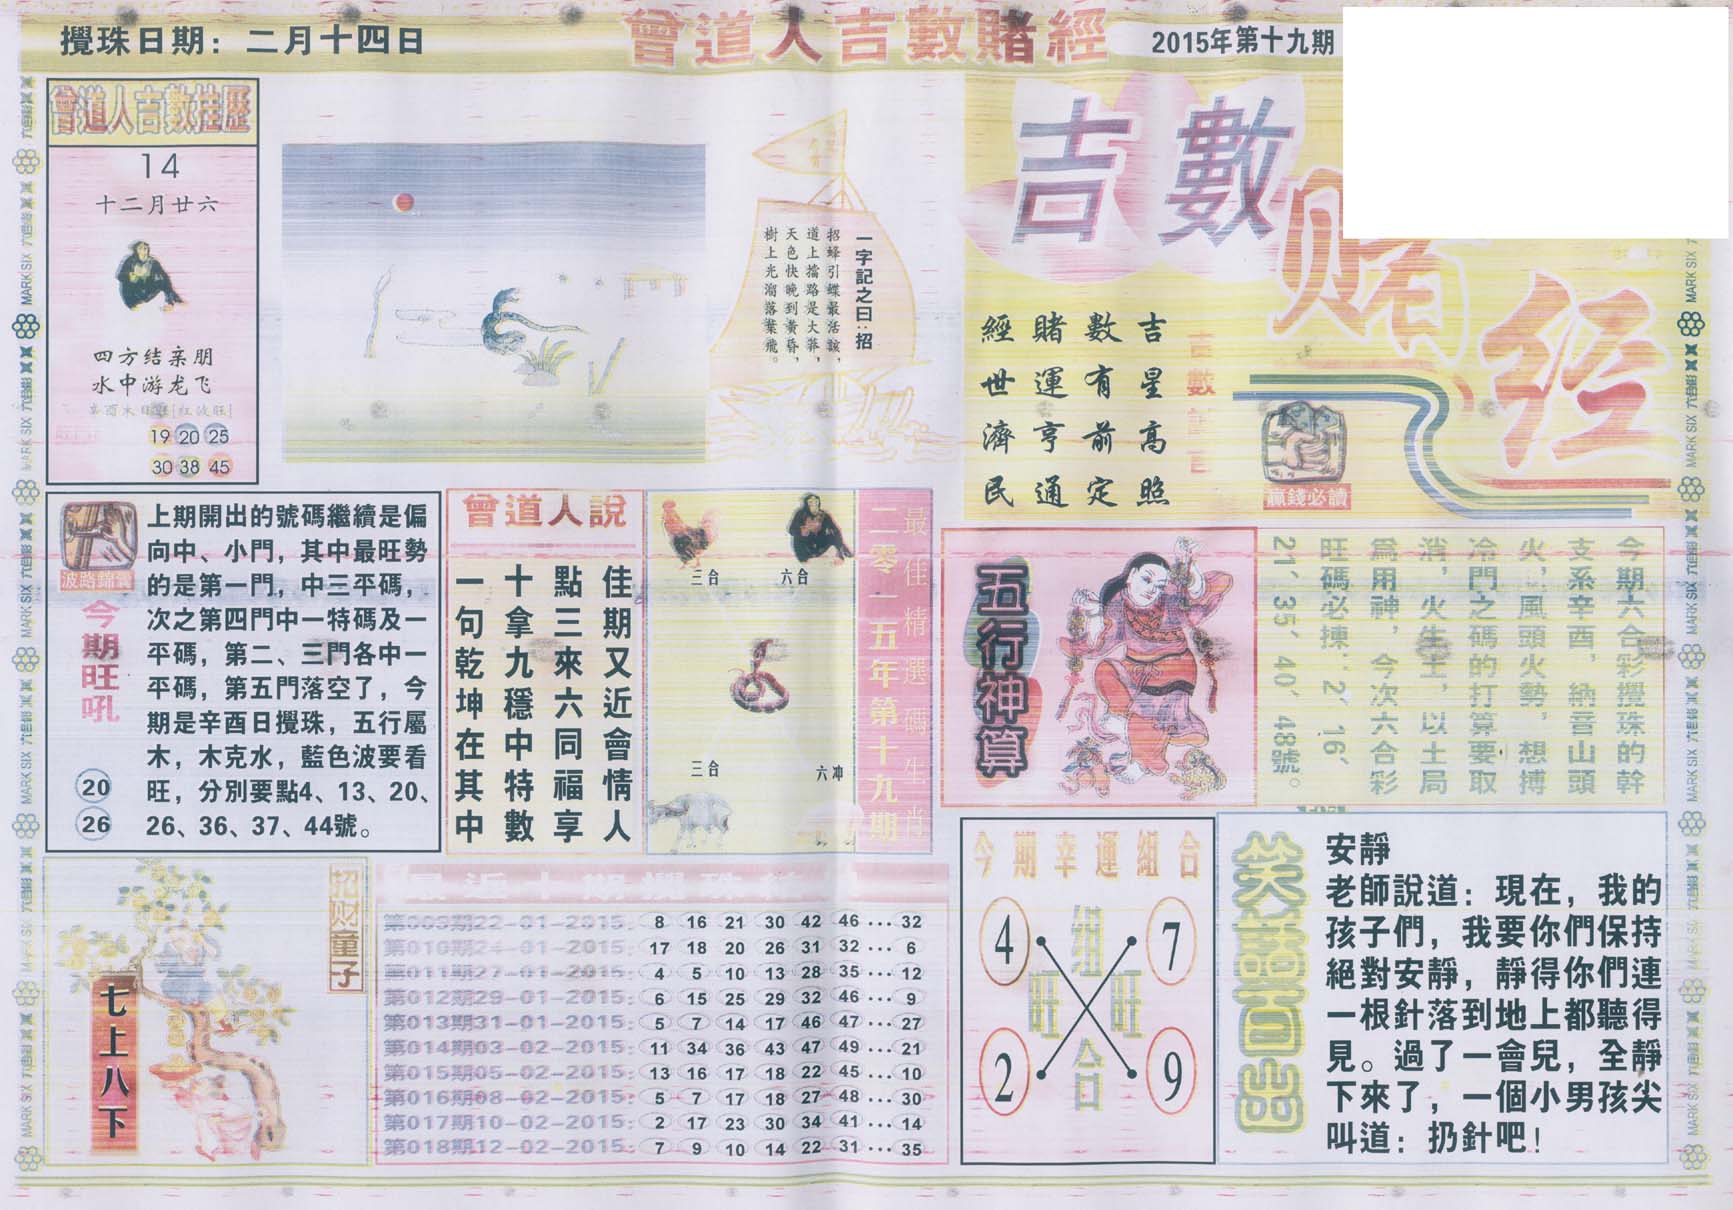 攪珠日期：二月十四日
曾道人吉數賭經
2015年第十九期
曾道人吉數挂歷
14
十二月廿六
四方结亲朋
水中游龙飞
辛酉木日旺[红波旺]
19 20 25
30 38 45
一字記之曰：招
招蜂引蝶最活該，
道上擋路是大莽，
天色快晚到黄昏，
樹上光溜落葉飛。
吉數
賭经
吉星高照
數有前定
賭運亨通
經世濟民
贏錢必讀
波路錦囊
今期旺吼
20
26
上期開出的號碼繼續是偏
向中、小門，其中最旺勢
的是第一門，中三平碼，
次之第四門中一特碼及一
平碼，第二、三門各中一
平碼，第五門落空了，今
期是辛酉日攪珠，五行屬
木，木克水，藍色波要看
旺，分別要點4、13、20、
26、36、37、44號。
曾道人說
佳期又近會情人
點三來六同福享
十拿九穩中特數
一句乾坤在其中
三合
六合
三合
六冲
最佳精選碼生肖
二零一五年第十九期
五行神算
今期六合彩攪珠的幹
支系辛酉，納音山頭
火，風頭火勢，想搏
冷門之碼的打算要取
消，火生土，以土局
為用神，今次六合彩
旺碼必揀：2、16、
21、35、40、48號。
招财童子
七上八下
最近十期攪珠
第009期22-01-2015: 8 16 21 30 42 46...32
第010期24-01-2015: 17 18 20 26 31 32...6
第011期27-01-2015: 4 5 10 13 28 35...12
第012期29-01-2015: 6 15 25 29 32 46...9
第013期31-01-2015: 5 7 14 17 46 47...27
第014期03-02-2015: 11 34 36 43 47 49...21
第015期05-02-2015: 13 16 17 18 22 45...10
第016期08-02-2015: 5 7 17 18 27 48...30
第017期10-02-2015: 2 17 23 30 34 41...14
第018期12-02-2015: 7 9 10 14 22 31...35
今期幸運組合
4 组 7
旺 旺
2 合 9
笑話百出
安靜
老師說道：現在，我的
孩子們，我要你們保持
絕對安靜，靜得你們連
一根針落到地上都聽得
見。過了一會兒，全靜
下來了，一個小男孩尖
叫道：扔針吧！
MARK SIX 六合彩